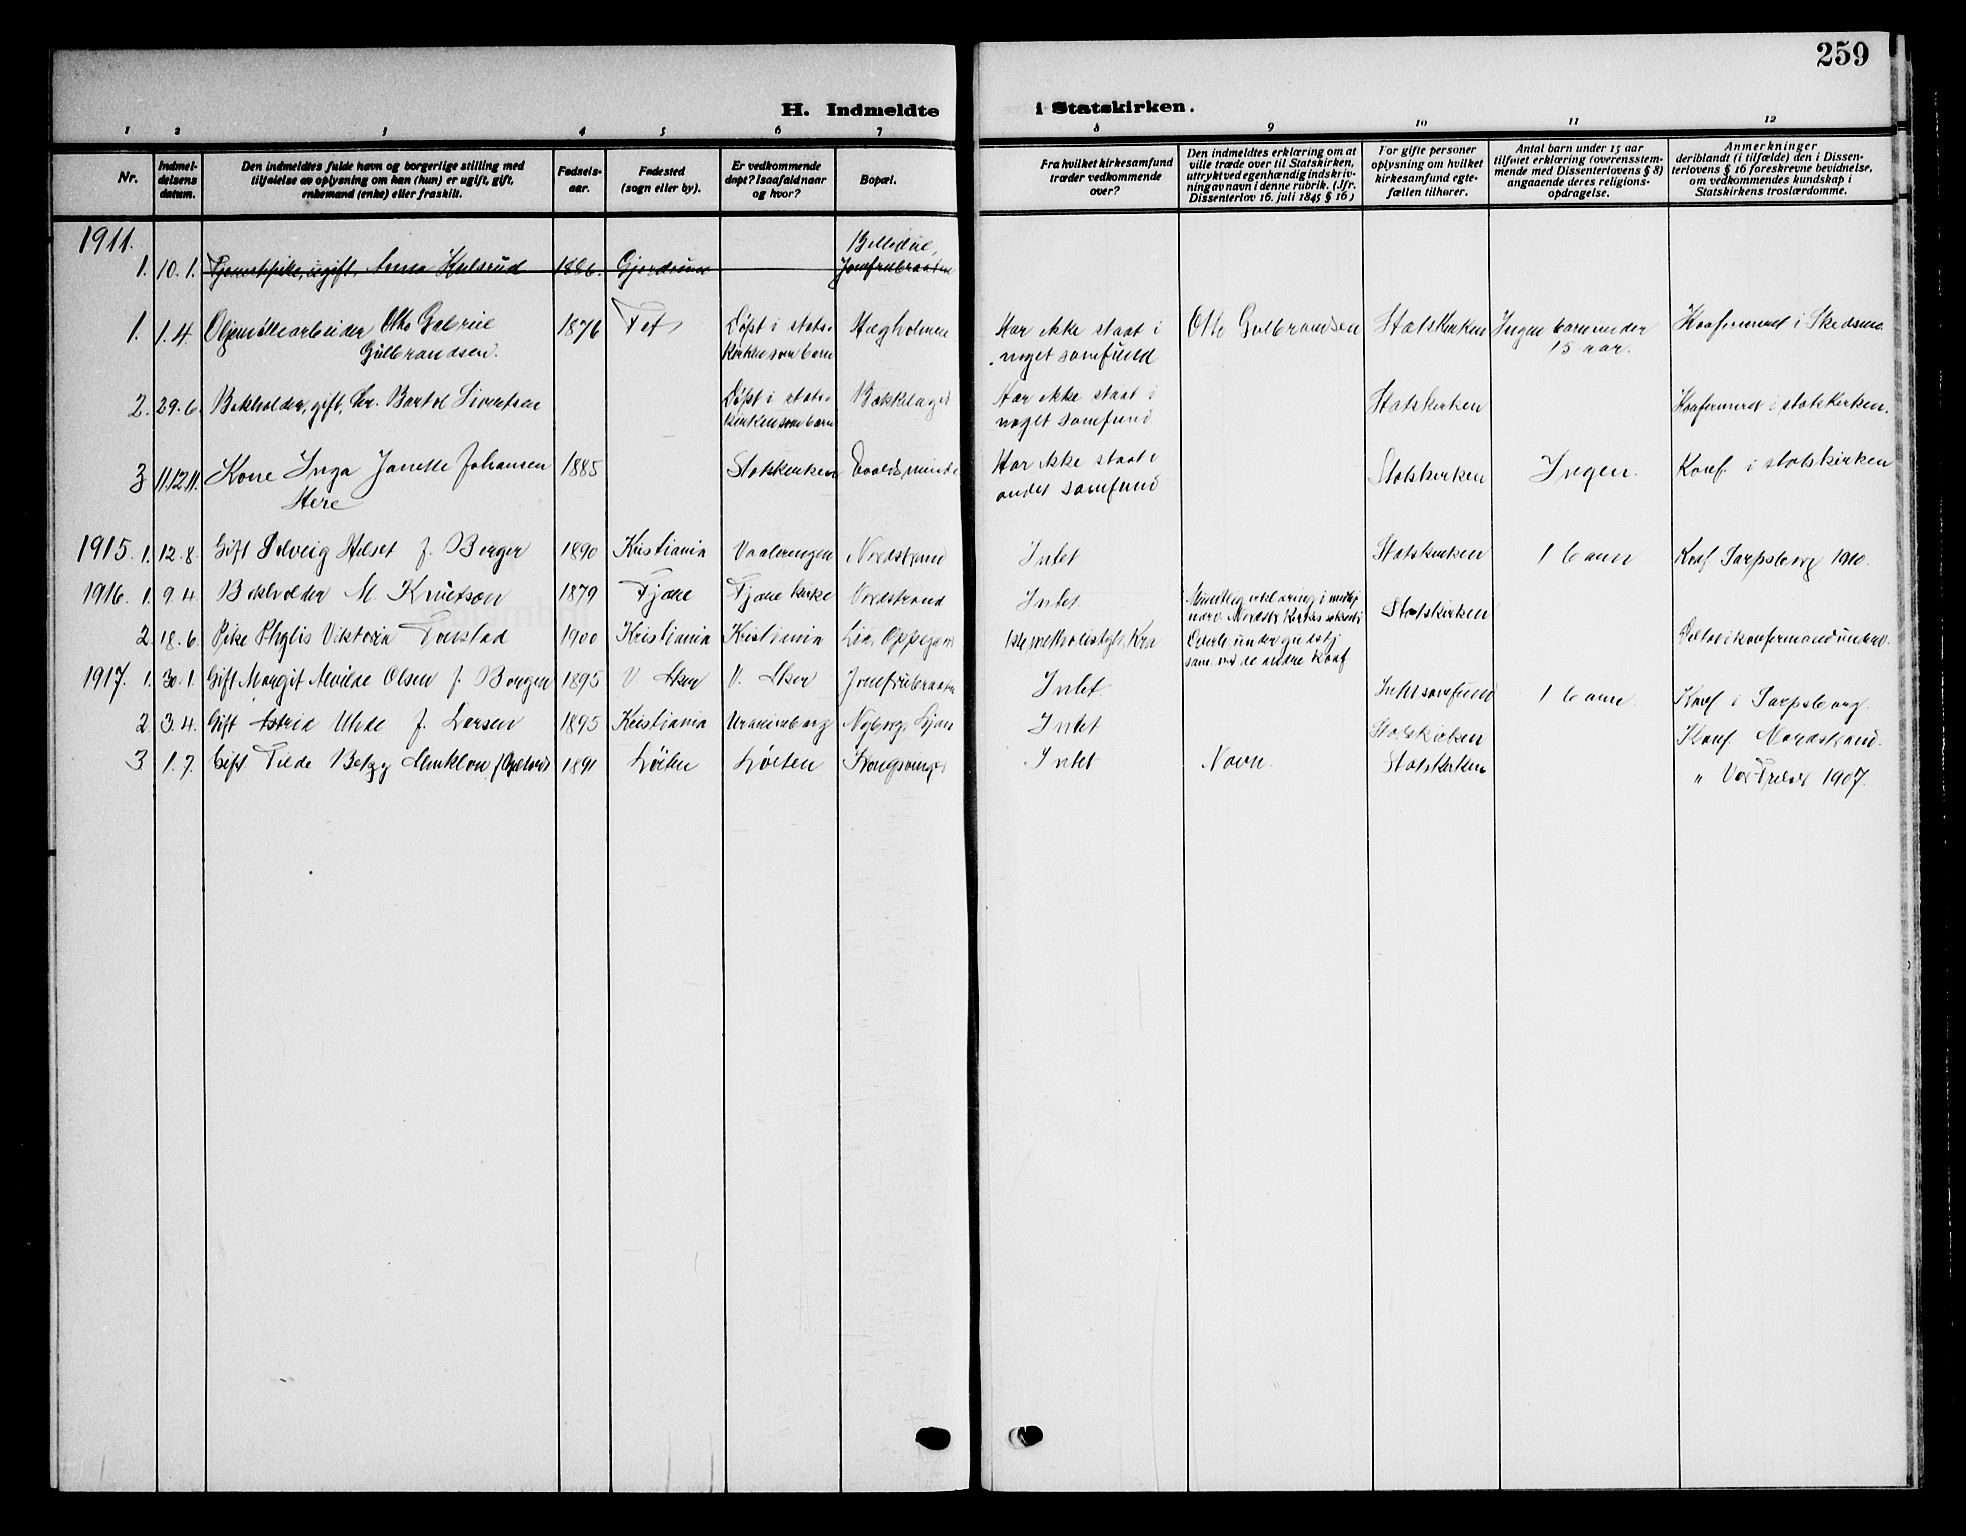 259
H. Indmeldte i Statskirken.
1 2 3 4 5 6 7 8 9 10 11 12
Nr.
Indmel-
delsens
datum.
Den indmeldtes fulde navn og borgerlige stilling med
tilføielse av oplysning om han (hun) er ugift, gift,
enkemand (enke) eller fraskilt.
Fødsels-
aar.
Fødested
(sogn eller by).
Er vedkommende
døpt? Isaafald naar
og hvor?
Bopæl.
Fra hvilket kirkesamfund
træder vedkommende
over?
Den indmeldtes erklæring om at
ville træde over til Statskirken,
uttrykt ved egenhændig indskriv-
ning av navn i denne rubrik. (Jfr.
Dissenterlov 16. juli 1845 § 16)
For gifte personer
oplysning om hvilket
kirkesamfund egte-
fællen tilhører.
Antal barn under 15 aar
tilføiet erklæring (overensstem-
mende med Dissenterlovens § 8)
angaaende deres religions-
opdragelse.
Anmerkninger
deriblandt (i tilfælde) den i Dissen-
terlovens § 16 foreskrevne bevidnelse,
om vedkommendes kundskap i
Statskirkens troslærdomme.
1911.
1. 10. 1. Tjenestpike, ugift, Anna Kulsrud 1886. Gjerdrum Jomfrubraaten
1. 1. 4. Otto Gabriel 1876 Fet Døpt i stats- Hægholmen Har ikke staat i Otto Gulbrandsen Statskirken Ingen barn under Konfirmeret i Skedsmo
Gulbrandsen. kirken som barn noget samfund 15 aar.
2. 29. 6. Bokholder, gift, Chr. Bartol Sivertsen Døpt i stats- Bækkelaget Har ikke staat i Statskirken Konfirmeret i statskirken.
kirken som barn noget samfund
3 11.12.11. Kone Inga Janette Johansen 1885 Statskirken Har ikke staat i Statskirken Ingen. Konf. i statskirken
andet samfund
1915. 1. 12. 8. Gift Solveig Helset f. Berger 1890 Kristiania Vaalerengen Nordstrand Intet Statskirken 1 barn Konf Sarpsborg 1910.
1916. 1. 9. 4. Bokholder M. Knutson 1879 Fjære Fjære kirke Nordstrand Intet Statskirken
2 18. 6. Pike Phylis Viktoria 1900 Kristiania Kristiania Lia, Oppegaard
1917. 1. 30. 1. Gift Margit Alvilde Olsen f. Borgen 1895 V. Aker V. Aker Jomfrubraaten Intet Intet samfund 1 barn Konf i Sarpsborg
2 3. 4. Gift Astrid f. Larsen 1895 Kristiania Uranienborg Nyborg, Ljan Intet Statskirken Konf. Nordstrand.
3 1. 7. Gift Tilde Betzy 1891 Løiten Løiten Kongsvinger Intet Navn. Statskirken " Vor Frelser 1907.